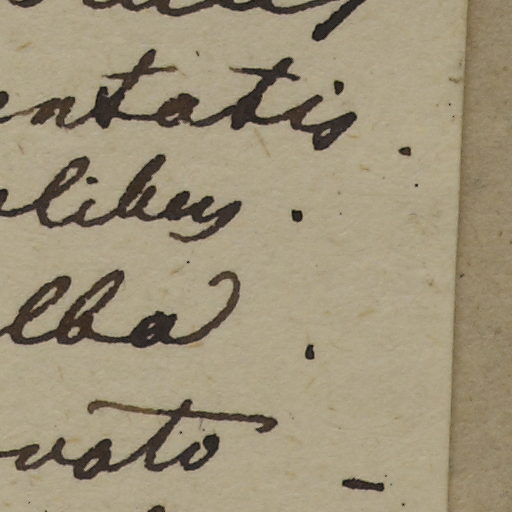 entatis.
libus.
lba.
vato -